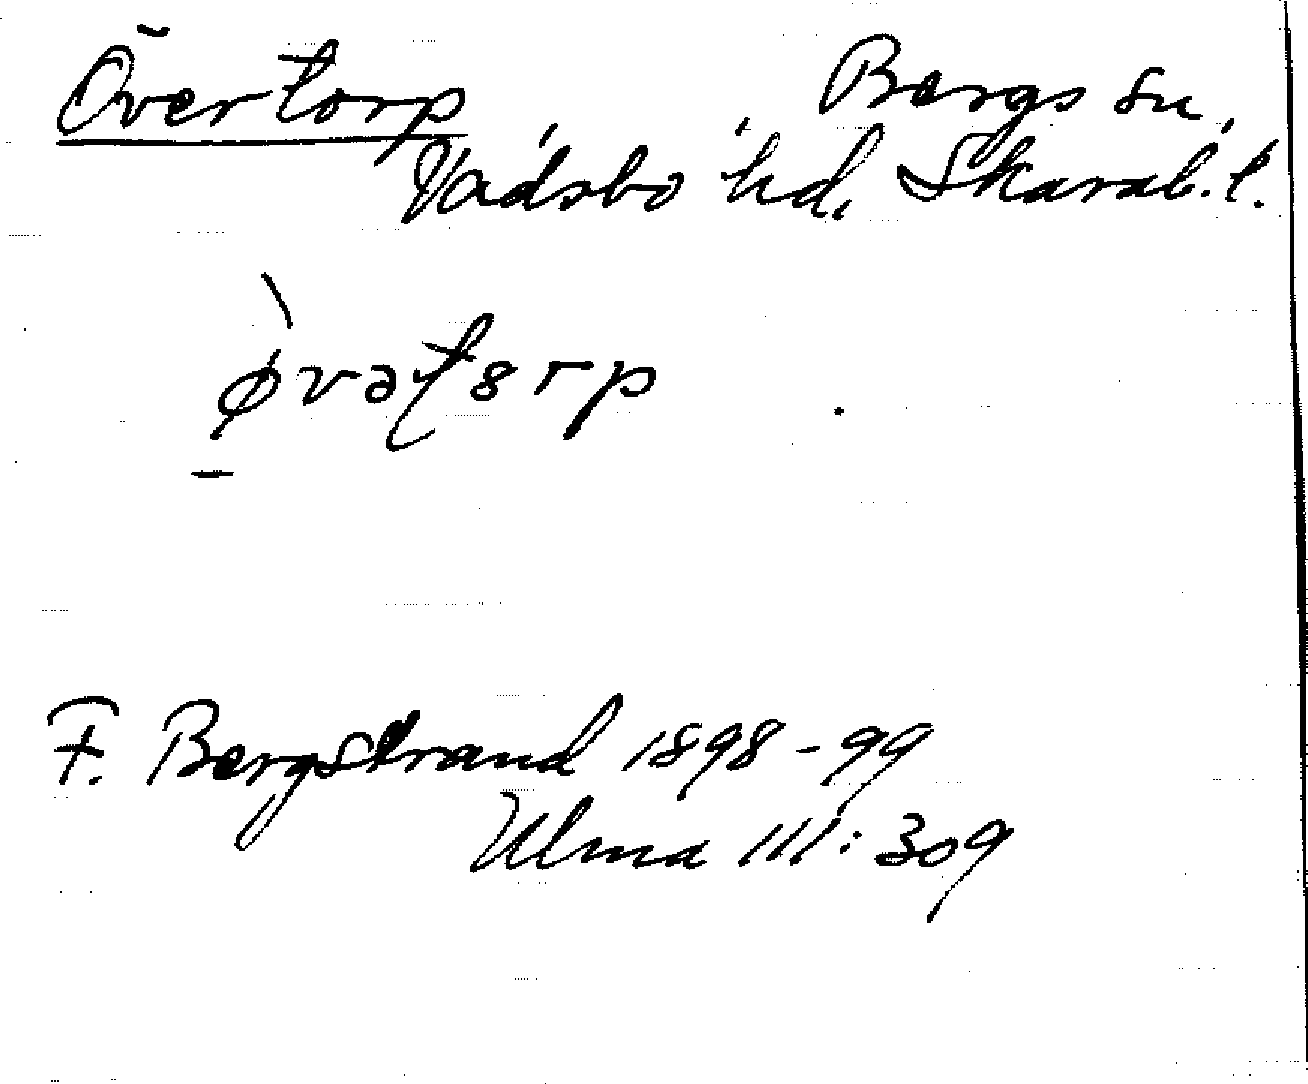 Övertorp Bergs sn,
Vadsbo hd, Skarab. l.
ø̀vəʈ8rp
F. Bergstrand 1898-99
Ulma 111:309